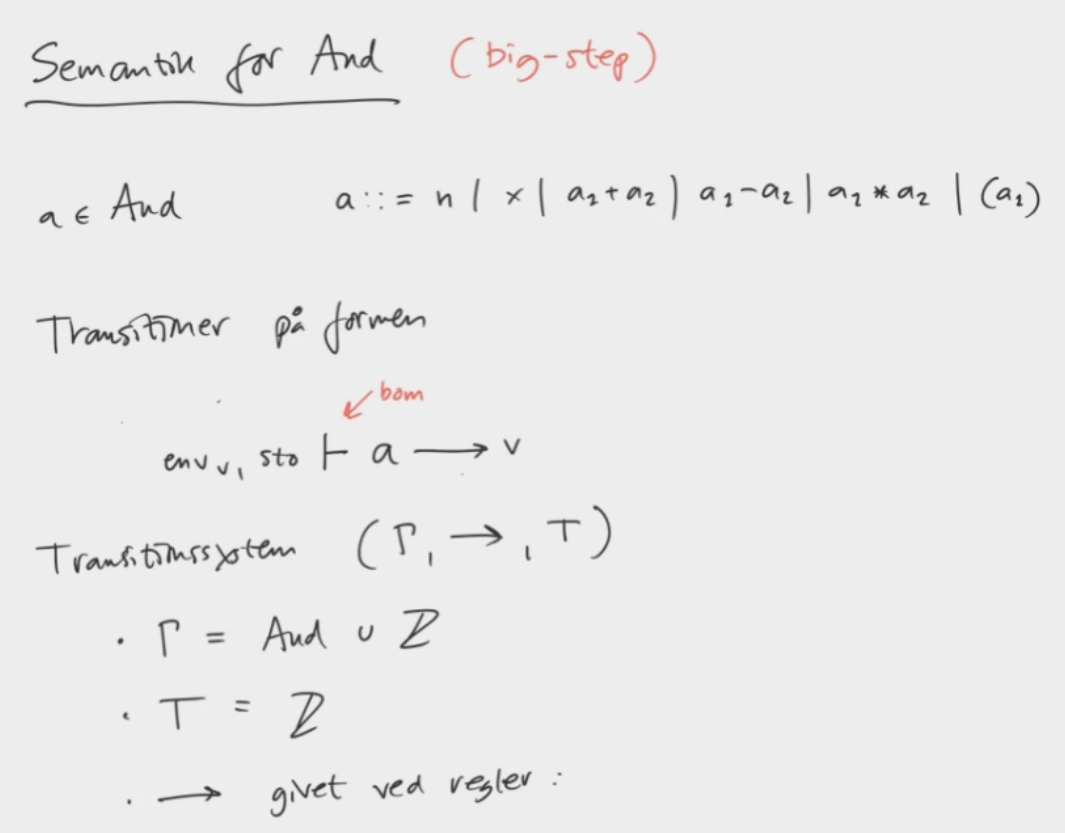 Semantik for And (big-step)
a ∈ And a ::= n | x | a₁+a₂ | a₁-a₂ | a₁*a₂ | (a₁)
Transitioner på formen
bom
env_v, sto ⊢ a → v
Transitionssystem (Γ, →, T)
· Γ = And ∪ ℤ
· T = ℤ
· → givet ved regler :